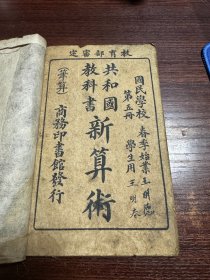 教育部審定
國民學校
春季始業
學生用
第五冊
共和國
教科書
新算術
（筆算）
商務印書館發行
王明
王明